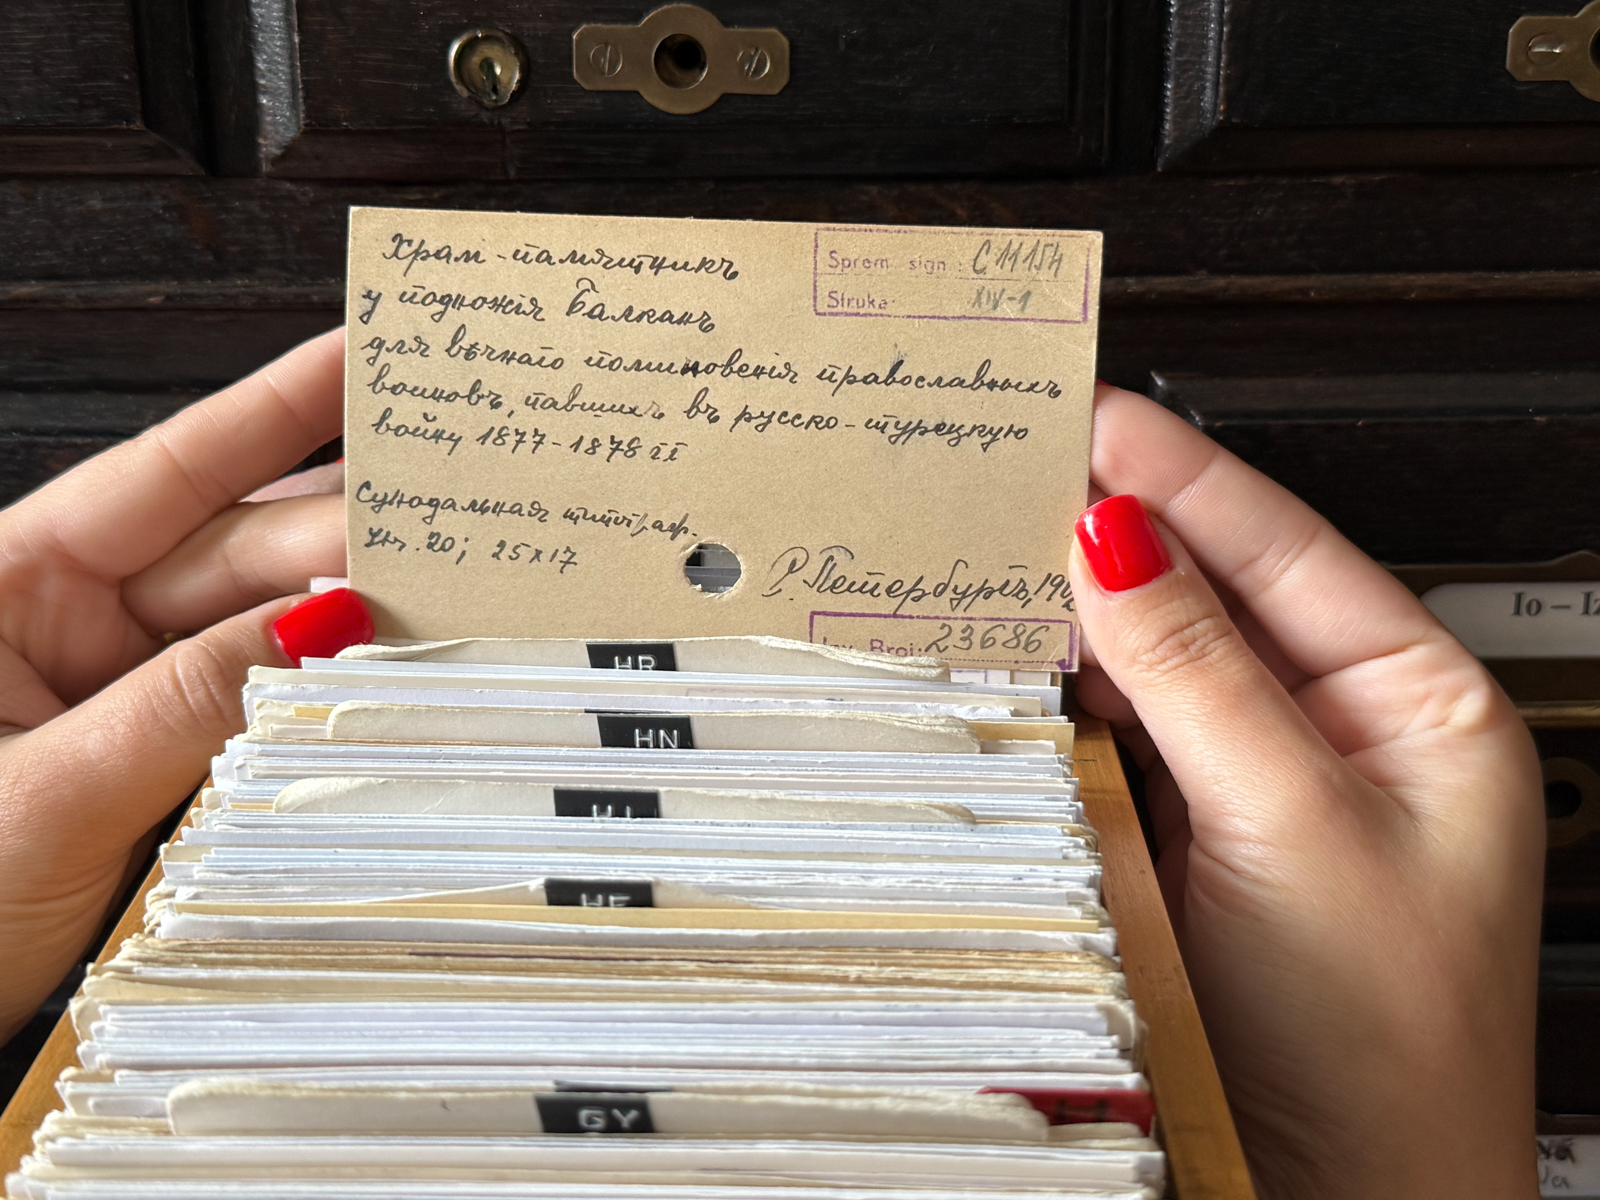 Sprem. sign.: C 11154
Struka: XIV-1
Храм-памятникъ
у подножія Балканъ
для вѣчнаго поминовенія православныхъ
воиновъ, павшихъ въ русско-турецкую
войну 1877-1878 гг
Сѵнодальная типограф.
стр. 20; 25x17
С. Петербургъ,
Inv. Broj: 23686
HR
HN
HI
HE
GY
H
Io – Iz